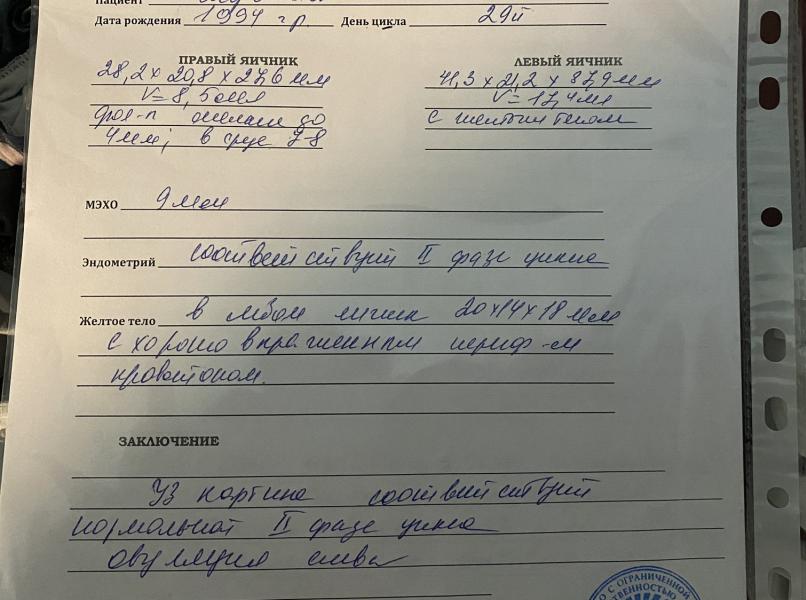 Пациент
Дата рождения 1994 г.р. День цикла 29й
ПРАВЫЙ ЯИЧНИК
28,2 x 20,8 x 27,6 мм
V= 8,5 мл
фол-л до
4мм; в срезе 7-8
ЛЕВЫЙ ЯИЧНИК
41,3 x 21,2 x 37,9 мм
V= 17,4 мл
с желтым телом
МЭХО 9 мм
Эндометрий соответствует II фазе цикла
Желтое тело в левом яичнике 20x14x18 мм
с хорошо выраженным периф-м
кровотоком.
ЗАКЛЮЧЕНИЕ
УЗ картина соответствует
нормальной II фазе цикла
овуляция слева
О С ОГРАНИЧЕННОЙ
ТСТВЕННОСТЬЮ